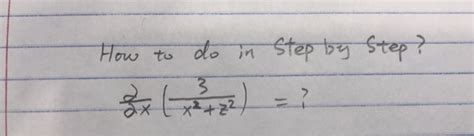 How to do in Step by Step?
∂/∂x (3/(x²+z²)) = ?